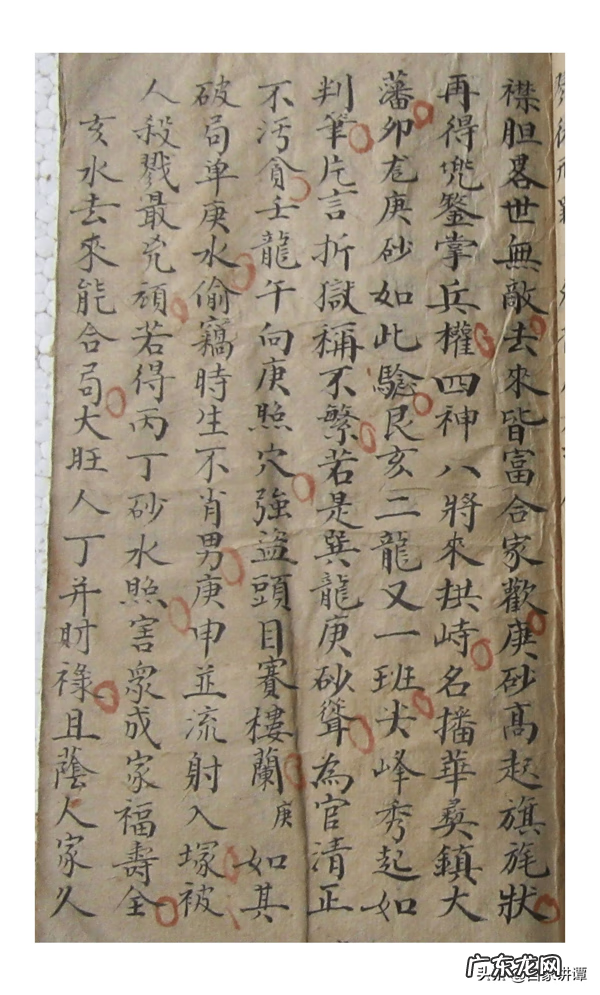 襟胆畧世無敵去來皆富合家歡庚砂高起旗旄狀
再得兜鍪掌兵權四神八將來拱峙名播華夷鎮大
藩卯龙庚砂如此騐艮亥二龍又一班尖峰秀起如
判筆片言折獄稱不繁若是巽龍庚砂聳為官清正
不污貪壬龍午向庚照穴強盜頭目賽樓蘭庚如其
破局单庚水偷竊時生不肖男庚申並流射入塚被
人殺戮最兇頑若得丙丁砂水照害衆成家福壽全
亥水去來能合局大旺人丁并財祿且蔭人家久
广东龙网
@百家讲谭